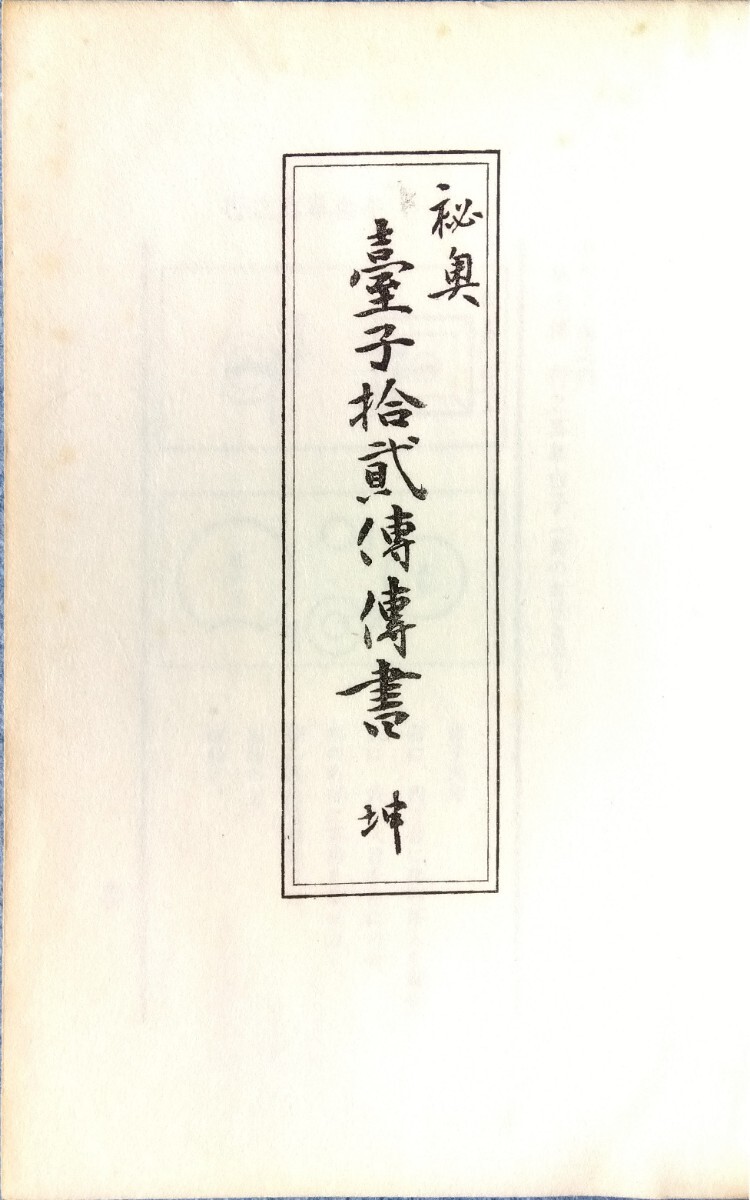 祕奥
臺子拾貳傳傳書 坤